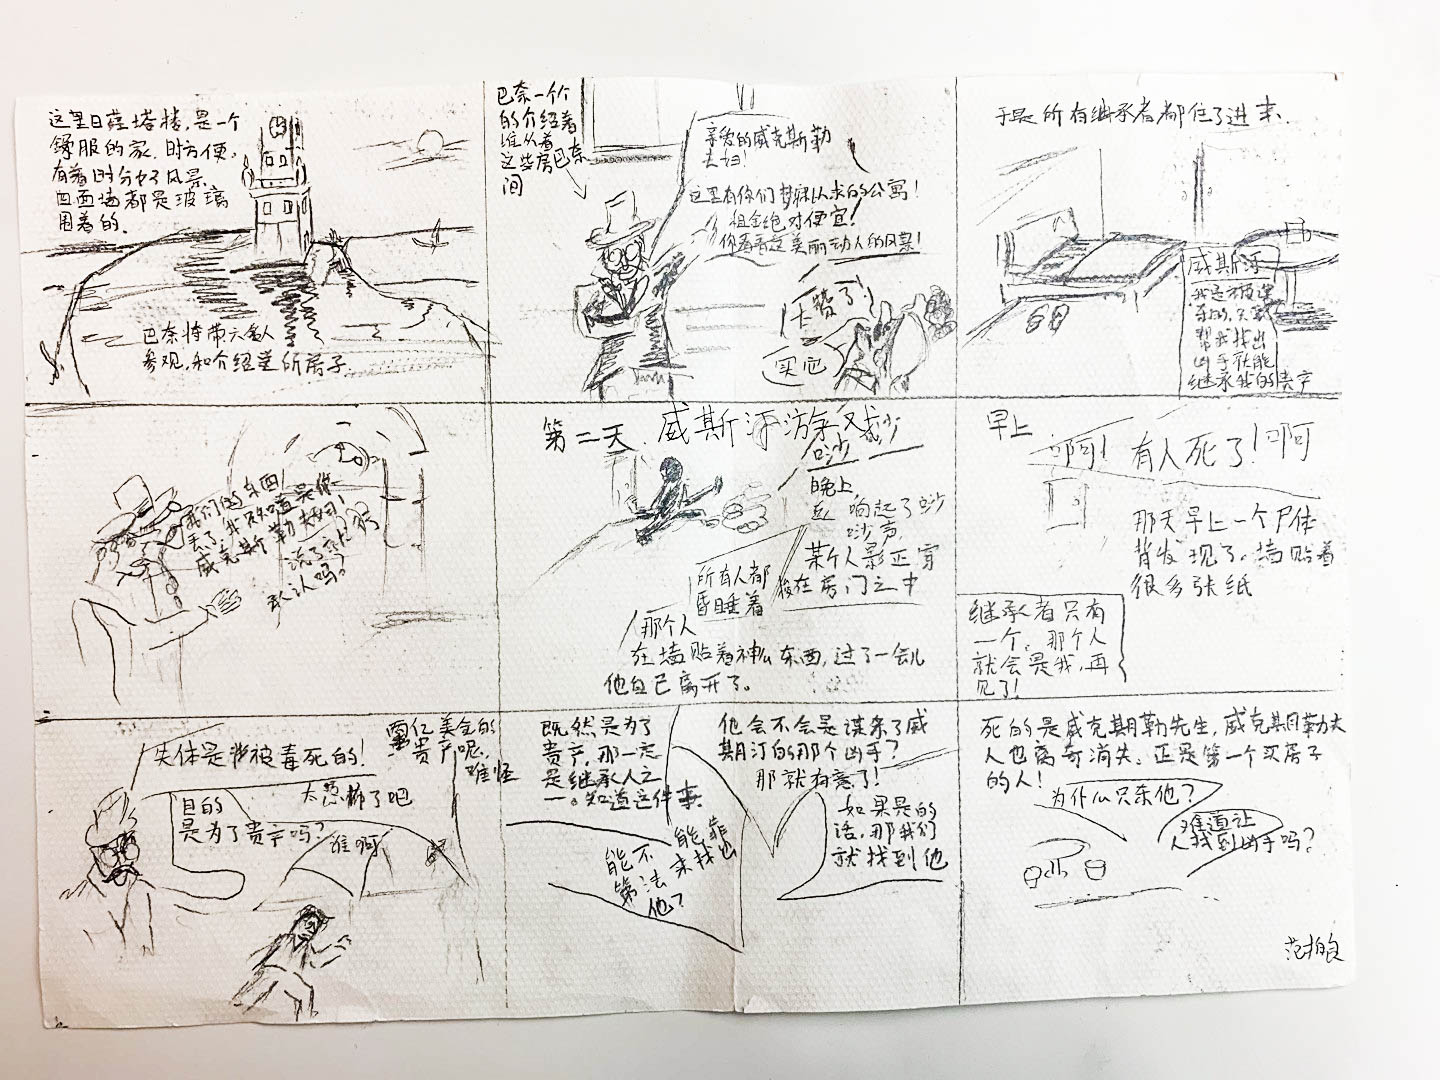 这里日薩塔楼，是一个
舒服的家，时方便。
四面墙都是玻璃
围着的。
巴奈将带六名人
参观，和介绍这所房子
巴奈一个个
的介绍着
这些房
间
巴奈
亲爱的威克斯勒
夫妇！
这里有你们梦寐以求的公寓！
租金绝对便宜！
你看看这美丽动人的风景！
太赞了！
买它
于是所有继承者都住了进来.
威斯汀
我是被谋
杀的，大家
帮我找出
凶手就能
继承我的贵产
我们的东西
丢了，我知道是你
威克斯勒夫妇！
承认吗？
第二天，威斯汀游戏
沙沙
晚上
响起了沙
沙声，
某个人影正穿
梭在房门之中
所有人都
昏睡着
那个人
在墙贴着神么东西，过了一会儿
他自己离开了。
早上
啊！有人死了！啊
那天早上一个尸体
背发现了，墙贴着
很多张纸
继承者只有
一个，那个人
就会是我，再
见了！
失体是被毒死的！
两亿美金的
贵产呢，
难怪
太恐怖了吧
目的
是为了贵产吗？
谁啊
既然是为了
贵产，那一定
是继承人之
一。知道这件事
能不能靠
他？
他会不会是谋杀了威
期汀的那个凶手？
那就有意了！
如果是的
话，那我们
就找到他
死的是威克期勒先生，威克期勒夫
人也离奇消失，正是第一个买房子
的人！
为什么只杀他？
难道让
人找到凶手吗？